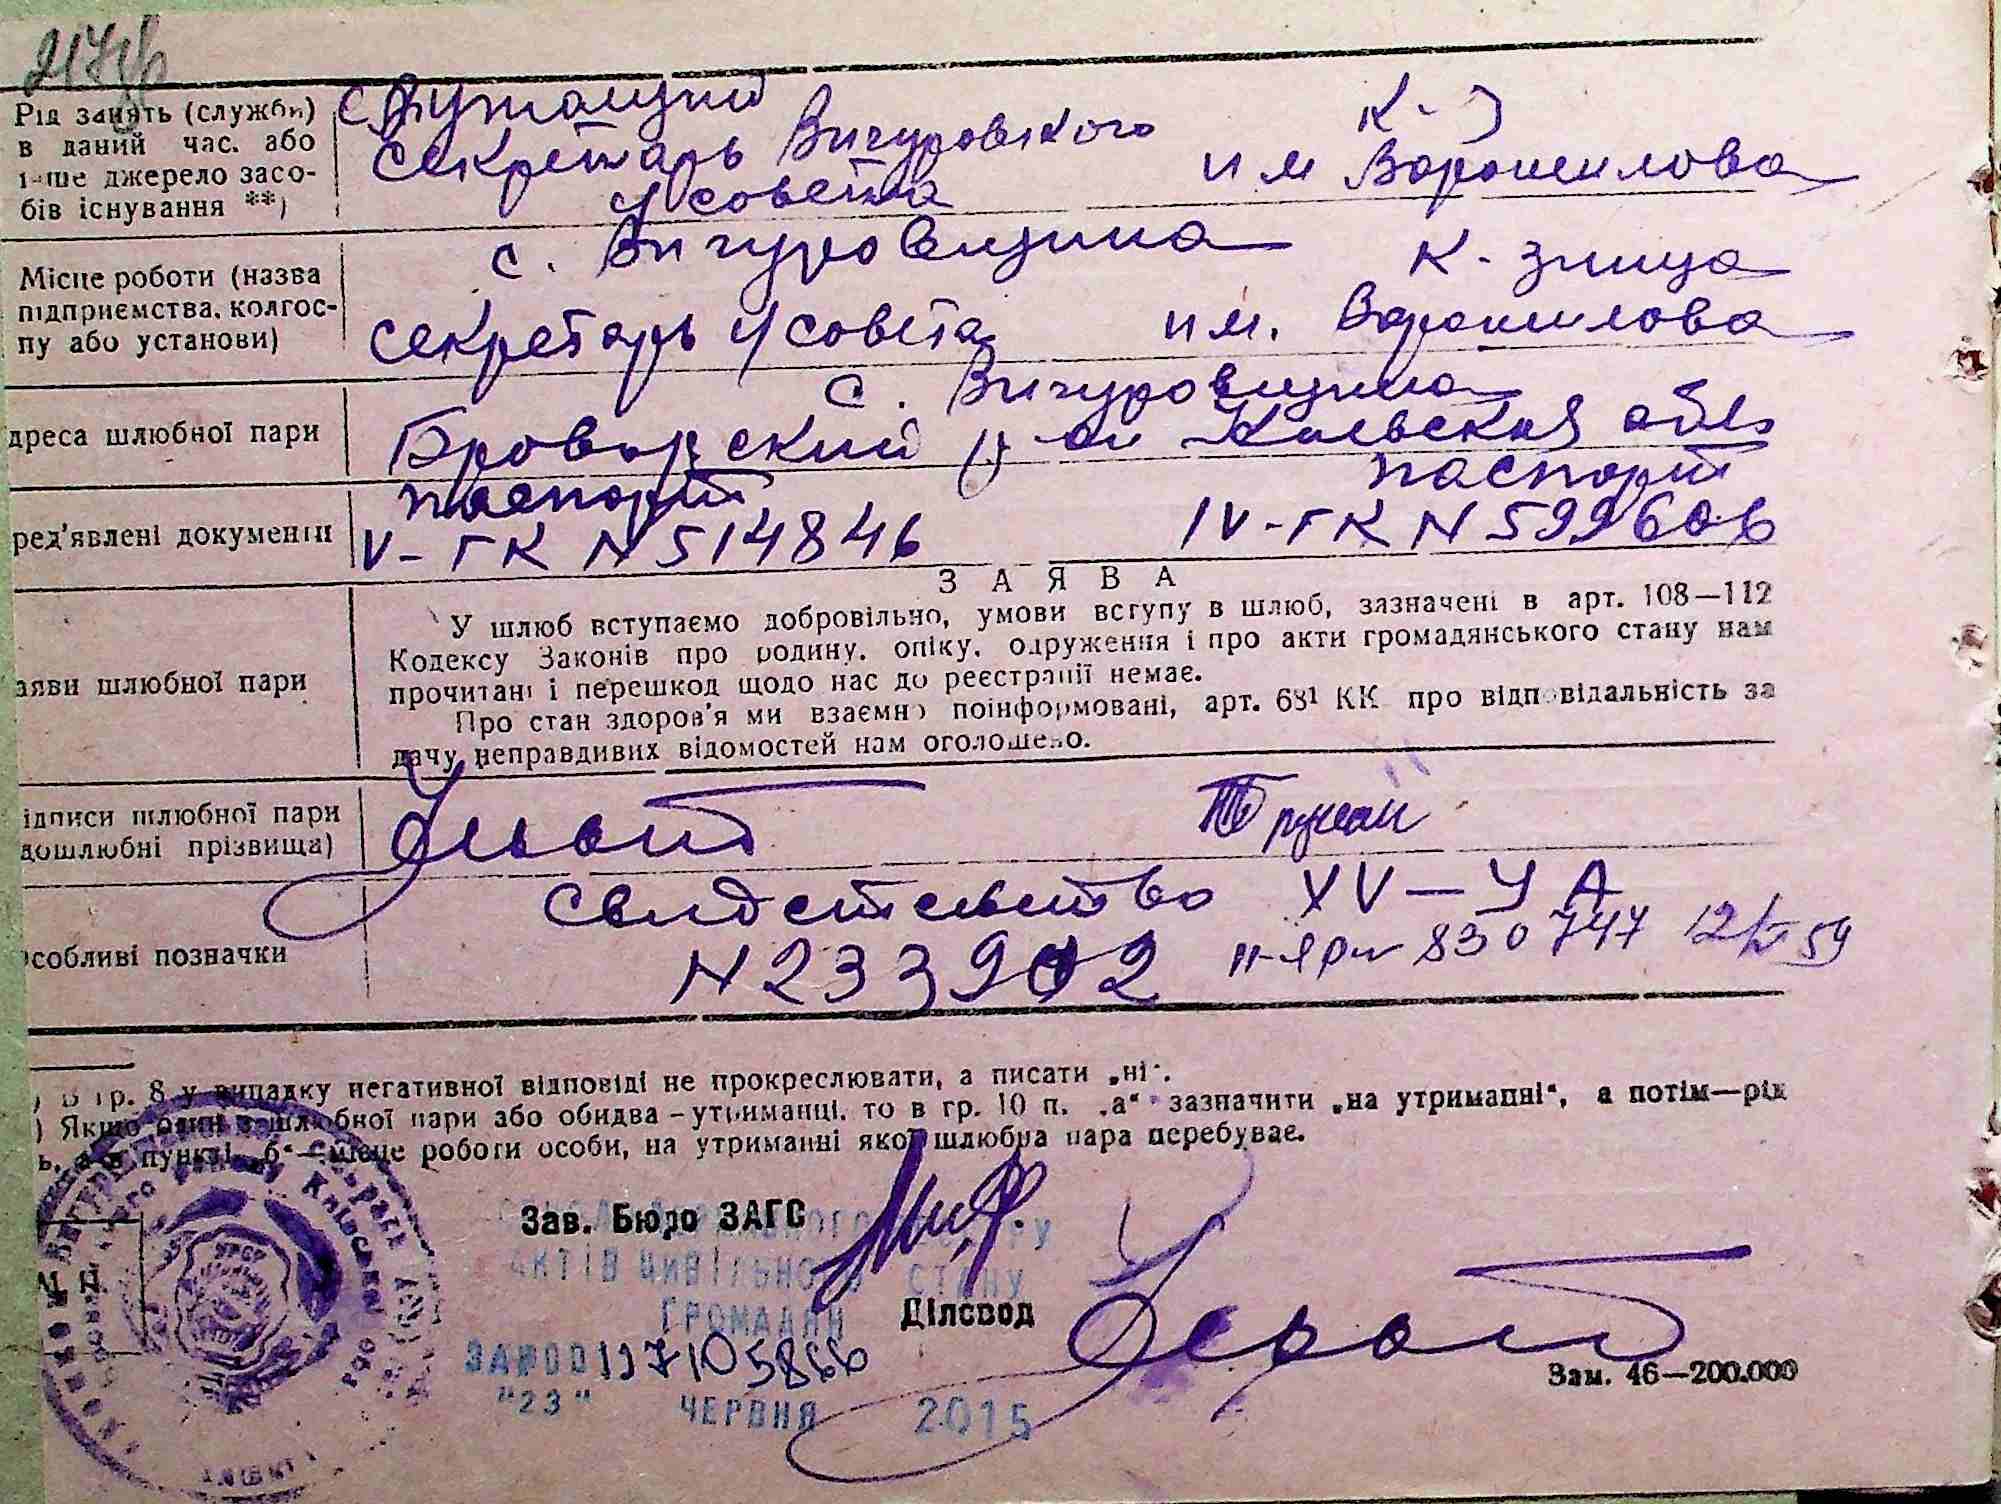 Рід занять (служби)
в даний час. або
інше джерело засо-
бів існування **)
служащий
секретарь Вигуровского
с/совета
К-з
им Ворошилова
Місце роботи (назва
підприємства, колгос-
пу або установи)
с. Вигуровщина
секретарь с/совета
К-зница
им. Ворошилова
дреса шлюбної пари
с. Вигуровщина
Броварский р-он Киевская обл
ред'явлені документи
паспорт
V-ГК N 514846
паспорт
IV-ГК N 599606
ЗАЯВА
аяви шлюбної пари
У шлюб вступаємо добровільно, умови вступу в шлюб, зазначені в арт. 108—112
Кодексу Законів про родину, опіку, одруження і про акти громадянського стану нам
прочитані і перешкод щодо нас до реєстрації немає.
Про стан здоров'я ми взаємно поінформовані, арт. 68¹ КК про відповідальність за
дачу неправдивих відомостей нам оголошено.
ідписи шлюбної пари
дошлюбні прізвища)
собливі позначки
свидетельство XV—УА
N 233902
830747 12/V 59
) В гр. 8 у випадку негативної відповіді не прокреслювати, а писати „ні".
) Якщо один з шлюбної пари або обидва - утриманці, то в гр. 10 п. „а" зазначити „на утриманні", а потім—рід
ь, а в пункті „б"—місце роботи особи, на утриманні якої шлюбна пара перебуває.
Зав. Бюро ЗАГС
АКТІВ ЦИВІЛЬНОГО СТАНУ
ГРОМАДЯН
Діловод
"23" ЧЕРВНЯ 2015
Зам. 46—200.000
УРСР